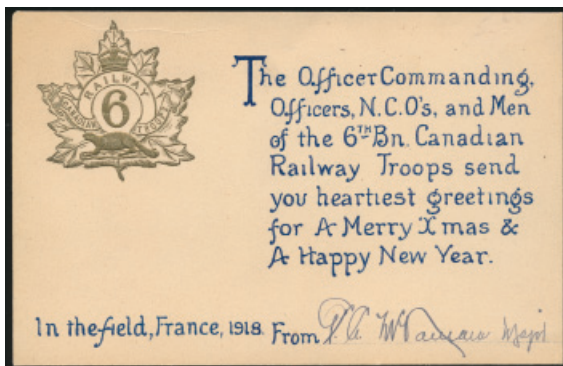 RAILWAY
CANADIAN 6 TROOPS
The Officer Commanding,
Officers, N.C.O's, and Men
of the 6TH Bn. Canadian
Railway Troops send
you heartiest greetings
for A Merry Xmas &
A Happy New Year.
In the field, France, 1918. From